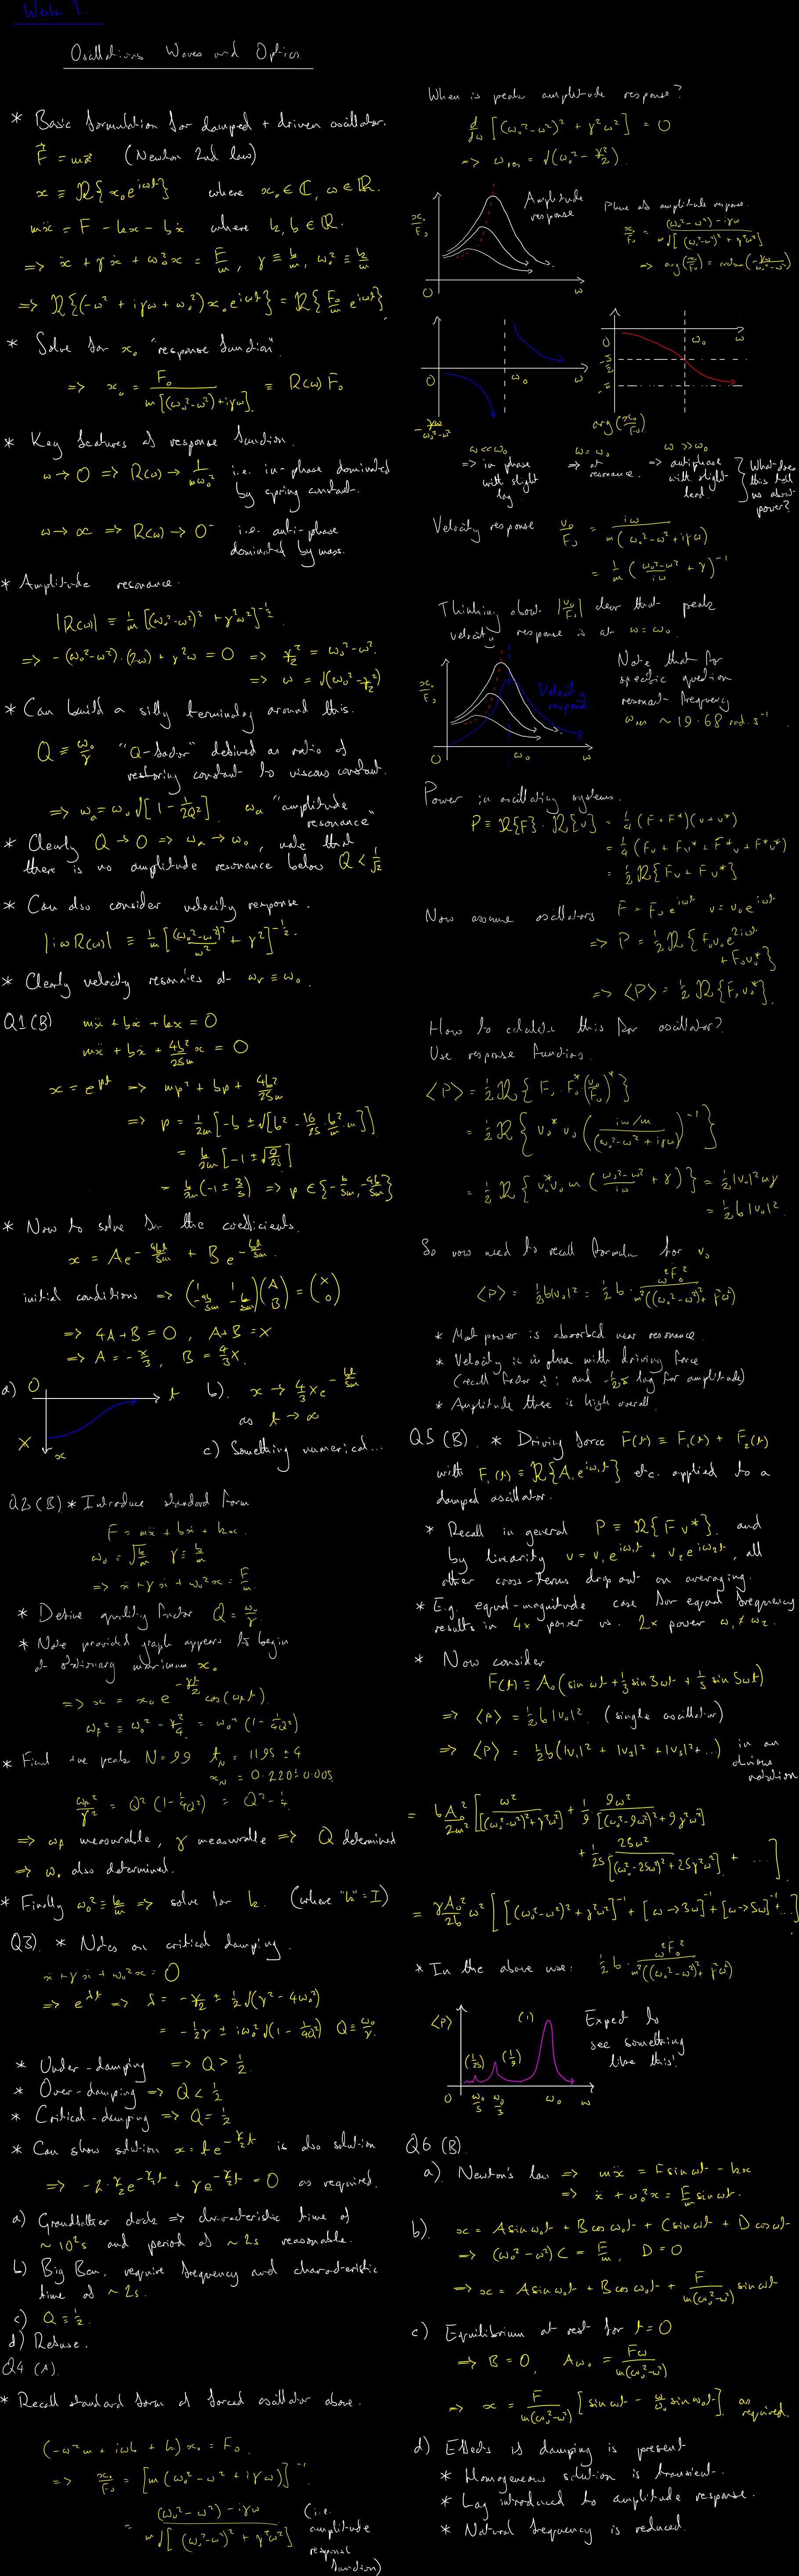 Week 1
Oscillations Waves and Optics
* Basic formulation for damped + driven oscillator.
F = mẍ (Newton 2nd law)
x ≡ ℜ{x₀e^{iωt}} where x₀ ∈ ℂ, ω ∈ ℝ.
mẍ = F - kx - bẋ where k, b ∈ ℝ.
=> ẍ + γẋ + ω₀²x = F/m, γ ≡ b/m, ω₀² ≡ k/m
=> ℜ{(-ω² + iγω + ω₀²)x₀e^{iωt}} = ℜ{F₀/m e^{iωt}}
* Solve for x₀ "response function".
=> x₀ = F₀ / m[(ω₀²-ω²)+iγω] ≡ R(ω)F₀
* Key features of response function.
ω → 0 => R(ω) → 1/mω₀² i.e. in-phase dominated
by spring constant.
ω → ∞ => R(ω) → 0⁻ i.e. anti-phase
dominated by mass.
* Amplitude resonance.
|R(ω)| ≡ 1/m [(ω₀²-ω²)² + γ²ω²]^{-1/2}
=> -(ω₀²-ω²)·(2ω) + γ²ω = 0 => γ²/2 = ω₀²-ω²
=> ω = √(ω₀²-γ²/2)
* Can build a silly terminology around this.
Q ≡ ω₀/γ "Q-factor" defined as ratio of
restoring constant to viscous constant.
=> ωₐ = ω₀√[1 - 1/2Q²]. ωₐ "amplitude
resonance"
* Clearly Q → 0 => ωₐ → ω₀, note that
there is no amplitude resonance below Q < 1/√2
* Can also consider velocity response.
|iωR(ω)| ≡ 1/m [(ω₀²-ω²)²/ω² + γ²]^{-1/2}.
* Clearly velocity resonates at ωᵥ ≡ ω₀.
Q1 (B) mẍ + bẋ + kx = 0
mẍ + bẋ + 4b²/25m x = 0
x = e^{pt} => mp² + bp + 4b²/25m
=> p = 1/2m [-b ± √[b² - 16/25 · b²/m · m]]
= b/2m [-1 ± √(9/25)]
= b/2m (-1 ± 3/5) => p ∈ {-b/5m, -4b/5m}
* Now to solve for the coefficients.
x = Ae^{-4bt/5m} + Be^{-bt/5m}
initial conditions => (1 1; -4b/5m -b/5m)(A; B) = (X; 0)
=> 4A + B = 0, A + B = X
=> A = -X/3, B = 4/3 X.
a) 0 t
X x
b). x → 4/3 X e^{-bt/5m}
as t → ∞
c) Something numerical...
Q2 (B) * Introduce standard form
F = mẍ + bẋ + kx.
ω₀ = √(k/m) γ ≡ b/m
=> ẍ + γẋ + ω₀²x = F/m
* Define quality factor Q = ω₀/γ
* Note provided graph appears to begin
at stationary maximum x₀
=> x = x₀e^{-γt/2} cos(ω_f t).
ω_f² ≡ ω₀² - γ²/4 = ω₀²(1 - 1/4Q²)
* Find the peaks N = 99 t_N = 1195 ± 4
x_N = 0.220 ± 0.005
ω_f²/γ² = Q²(1 - 1/4Q²) = Q² - 1/4
=> ω_f measurable, γ measurable => Q determined
=> ω₀ also determined.
* Finally ω₀² ≡ k/m => solve for k. (where "k" = I)
Q3). * Notes on critical damping.
ẍ + γẋ + ω₀²x = 0
=> e^{λt} => λ = -γ/2 ± 1/2 √(γ² - 4ω₀²)
= -1/2 γ ± iω₀√(1 - 1/4Q²) Q ≡ ω₀/γ
* Under-damping => Q > 1/2
* Over-damping => Q < 1/2
* Critical-damping => Q = 1/2
* Can show solution x = te^{-γ/2 t} is also solution
=> -2·γ/2 e^{-γ/2 t} + γe^{-γ/2 t} = 0 as required.
a) Grandfather clock => characteristic time of
~ 10²s and period of ~ 2s reasonable.
b) Big Ben, require frequency and characteristic
time of ~ 2s.
c) Q = 1/2.
d) Refuse.
Q4 (A).
* Recall standard form of forced oscillator above.
(-ω²m + iωb + k)x₀ = F₀
=> x₀/F₀ = [m(ω₀² - ω² + iγω)]⁻¹
= (ω₀²-ω²) - iγω / m√[(ω₀²-ω²)² + γ²ω²] (i.e.
amplitude
response
function)
When is peak amplitude response?
d/dω [(ω₀²-ω²)² + γ²ω²] = 0
=> ω_res = √(ω₀² - γ²/2).
x₀/F₀ Amplitude
response
0 ω
Phase of amplitude response.
x₀/F₀ = (ω₀²-ω²) - iγω / m√[(ω₀²-ω²)² + γ²ω²]
=> arg(x₀/F₀) = arctan(-γω/ω₀²-ω²)
0 ω₀ ω
-γω/ω₀²-ω²
0 ω₀ ω
-π/2
-π
arg(x₀/F₀)
ω << ω₀ ω = ω₀ ω >> ω₀
=> in phase
with slight
lag.
=> at
resonance.
=> antiphase
with slight
lead.
What does
this tell
us about
power?
Velocity response v₀/F₀ = iω / m(ω₀² - ω² + iγω)
= 1/m (ω₀²-ω²/iω + γ)⁻¹
Thinking about |v₀/F₀| clear that peak
velocity response is at ω = ω₀.
x₀/F₀ Velocity
response
0 ω₀ ω
Note that for
specific question
resonant frequency
ω_res ~ 19.68 rad.s⁻¹.
Power in oscillating systems.
P ≡ ℜ{F}·ℜ{v} = 1/4 (F + F*)(v + v*)
= 1/4 (Fv + Fv* + F*v + F*v*)
= 1/2 ℜ{Fv + Fv*}
Now assume oscillators F = F₀e^{iωt} v = v₀e^{iωt}
=> P = 1/2 ℜ{F₀v₀e^{2iωt}
+ F₀v₀*}
=> ⟨P⟩ = 1/2 ℜ{F₀v₀*}.
How to calculate this for oscillator?
Use response function.
⟨P⟩ = 1/2 ℜ{F₀·F₀*(v₀/F₀)*}
= 1/2 ℜ{v₀*v₀ (iω/m / (ω₀²-ω²+iγω))⁻¹}
= 1/2 ℜ{v₀*v₀ m (ω₀²-ω²/iω + γ)} = 1/2 |v₀|² mγ
= 1/2 b|v₀|².
So now need to recall formula for v₀
⟨P⟩ = 1/2 b|v₀|² = 1/2 b · ω²F₀² / m²((ω₀²-ω²)² + γ²ω²)
* Most power is absorbed near resonance.
* Velocity is in phase with driving force
(recall factor of i and -π/2 lag for amplitude)
* Amplitude there is high overall.
Q5 (B). * Driving force F(t) ≡ F₁(t) + F₂(t)
with F₁(t) ≡ ℜ{A₁e^{iω₁t}} etc. applied to a
damped oscillator.
* Recall in general P ≡ ℜ{Fv*} and
by linearity v = v₁e^{iω₁t} + v₂e^{iω₂t}, all
other cross-terms drop out on averaging.
* E.g. equal-magnitude case for equal frequency
results in 4x power vs. 2x power ω₁ ≠ ω₂.
* Now consider
F(t) ≡ A₀(sin ωt + 1/3 sin 3ωt + 1/5 sin 5ωt)
=> ⟨P⟩ = 1/2 b|v₀|². (single oscillator)
=> ⟨P⟩ = 1/2 b(|v₁|² + |v₃|² + |v₅|² + ...) in an
obvious
notation
= bA₀²/2m² [ω²/[(ω₀²-ω²)²+γ²ω²] + 1/9 9ω²/[(ω₀²-9ω²)²+9γ²ω²]
+ 1/25 25ω²/[(ω₀²-25ω²)²+25γ²ω²] + ...].
= γA₀²/2b ω² [[(ω₀²-ω²)²+γ²ω²]⁻¹ + [ω→3ω]⁻¹ + [ω→5ω]⁻¹+...]
* In the above use: 1/2 b · ω²F₀² / m²((ω₀²-ω²)² + γ²ω²)
⟨P⟩ (1/25) (1/9) (1)
0 ω₀/5 ω₀/3 ω₀ ω
Expect to
see something
like this!
Q6 (B).
a). Newton's law => mẍ = F sin ωt - kx
=> ẍ + ω₀²x = F/m sin ωt.
b). x = A sin ω₀t + B cos ω₀t + C sin ωt + D cos ωt
=> (ω₀² - ω²)C = F/m, D = 0
=> x = A sin ω₀t + B cos ω₀t + F/m(ω₀²-ω²) sin ωt
c) Equilibrium at rest for t = 0
=> B = 0, Aω₀ = -Fω/m(ω₀²-ω²)
=> x = F/m(ω₀²-ω²) [sin ωt - ω/ω₀ sin ω₀t] as
required.
d) Effects if damping is present
* Homogeneous solution is transient.
* Lag introduced to amplitude response.
* Natural frequency is reduced.